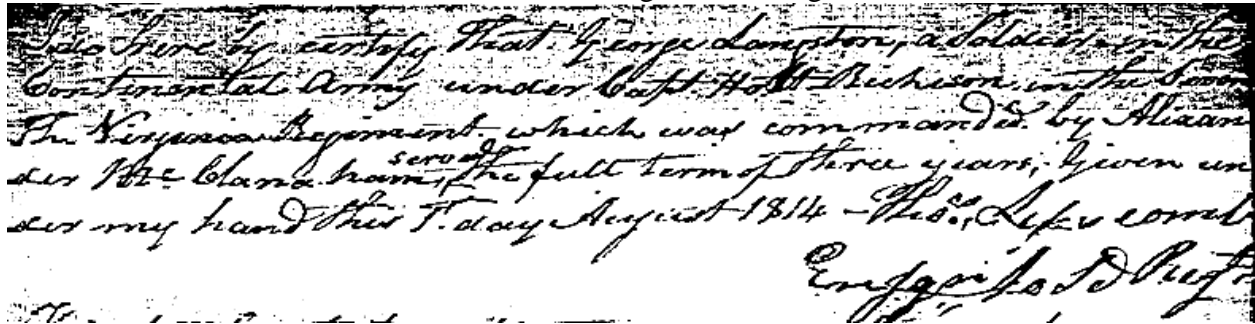 I do here by certify that George Langston, a Soldier in the
Continental Army under Capt. Holt Richeson in the Seven
Th Virginia Regiment which was commanded by Alixan
der McClana ham, served the full term of three years, Given un
der my hand this 1. day August 1814 - Thos. Lipscomb
Ensign to Sd Regt